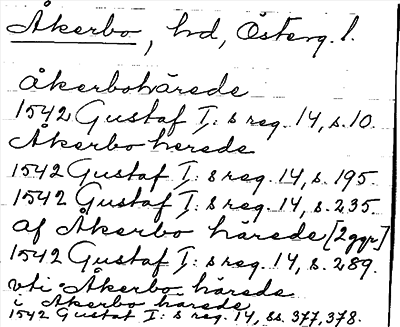 Åkerbo, hd, Österg. l.
åkerbohärede
1542 Gustaf I: s reg. 14, s. 10.
Åkerbo herede
1542 Gustaf I: s reg. 14, s. 195.
1542 Gustaf I: s reg. 14, s. 235.
af Åkerbo härede [2 ggr]
1542 Gustaf I: s reg. 14, s. 289.
vti Åkerbo härede
i Åkerbo härede
1542 Gustaf I: s reg. 14, ss. 377, 378.